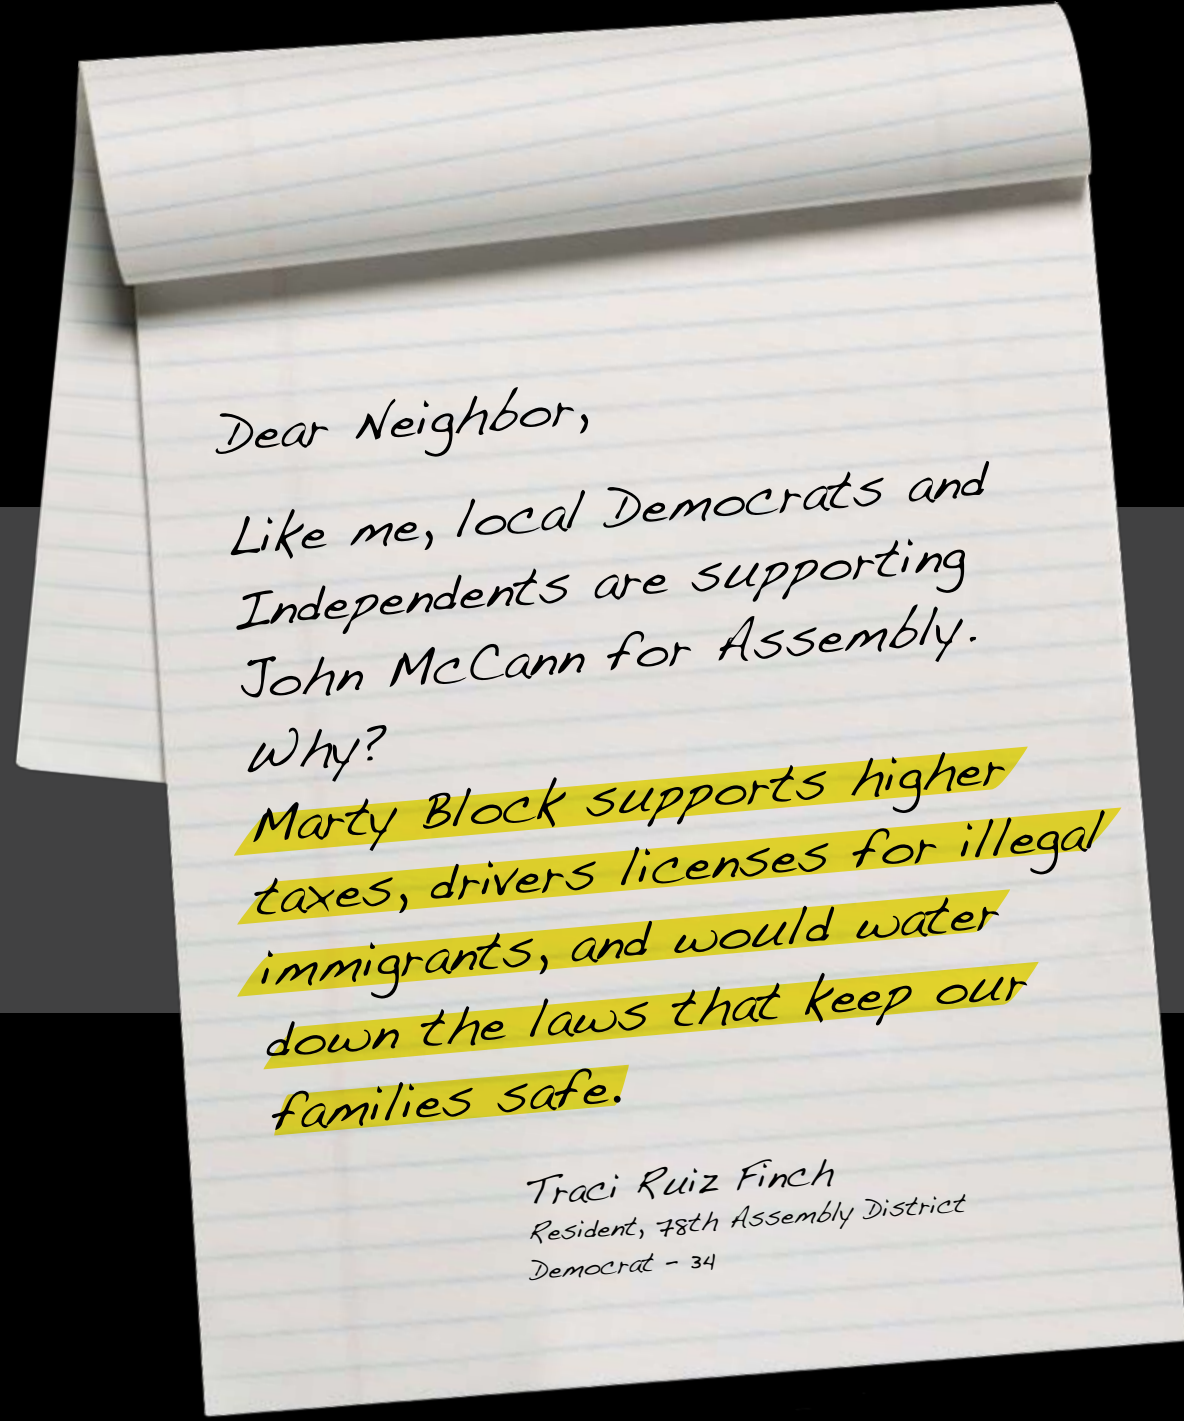 Dear Neighbor,
Like me, local Democrats and
Independents are supporting
John McCann for Assembly.
Why?
Marty Block supports higher
taxes, drivers licenses for illegal
immigrants, and would water
down the laws that keep our
families safe.
Traci Ruiz Finch
Resident, 78th Assembly District
Democrat - 34